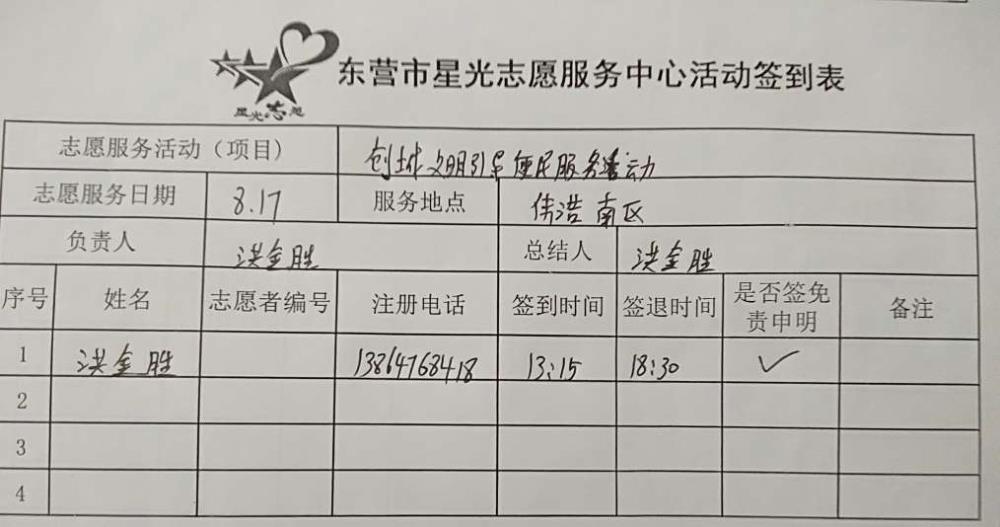 星光志愿
东营市星光志愿服务中心活动签到表
志愿服务活动（项目） 创城文明引导便民服务活动
志愿服务日期 8.17 服务地点 伟浩南区
负责人 洪金胜 总结人 洪金胜
序号 姓名 志愿者编号 注册电话 签到时间 签退时间 是否签免责申明 备注
1 洪金胜 13864768418 13:15 18:30 ✓
2
3
4